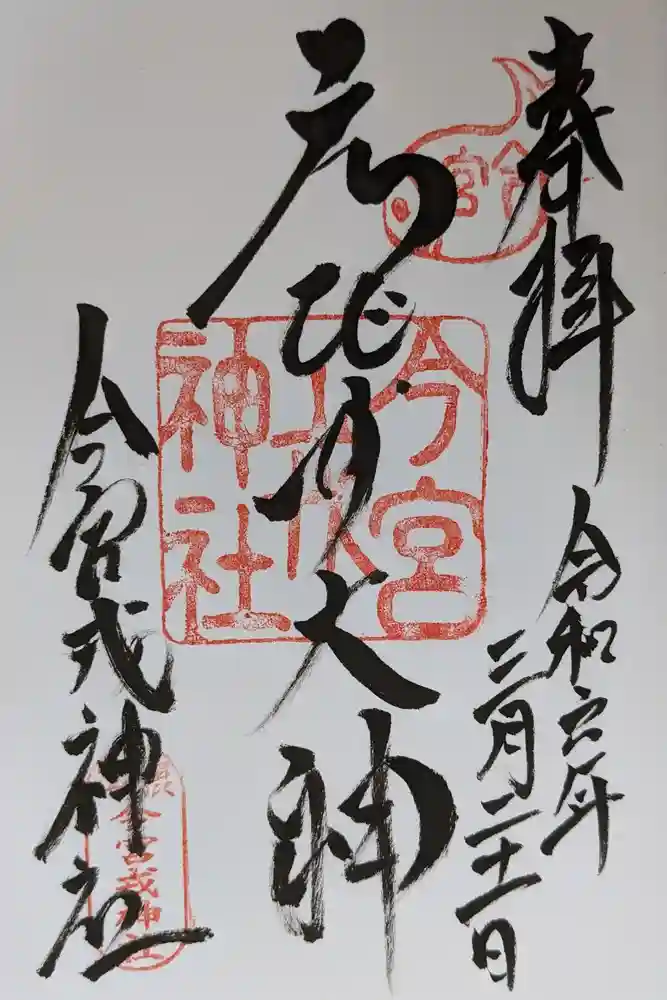 奉拝
令和六年
三月二十一日
大神
今宮戎神社
今宮
今宮
戎
神社
今宮戎神社